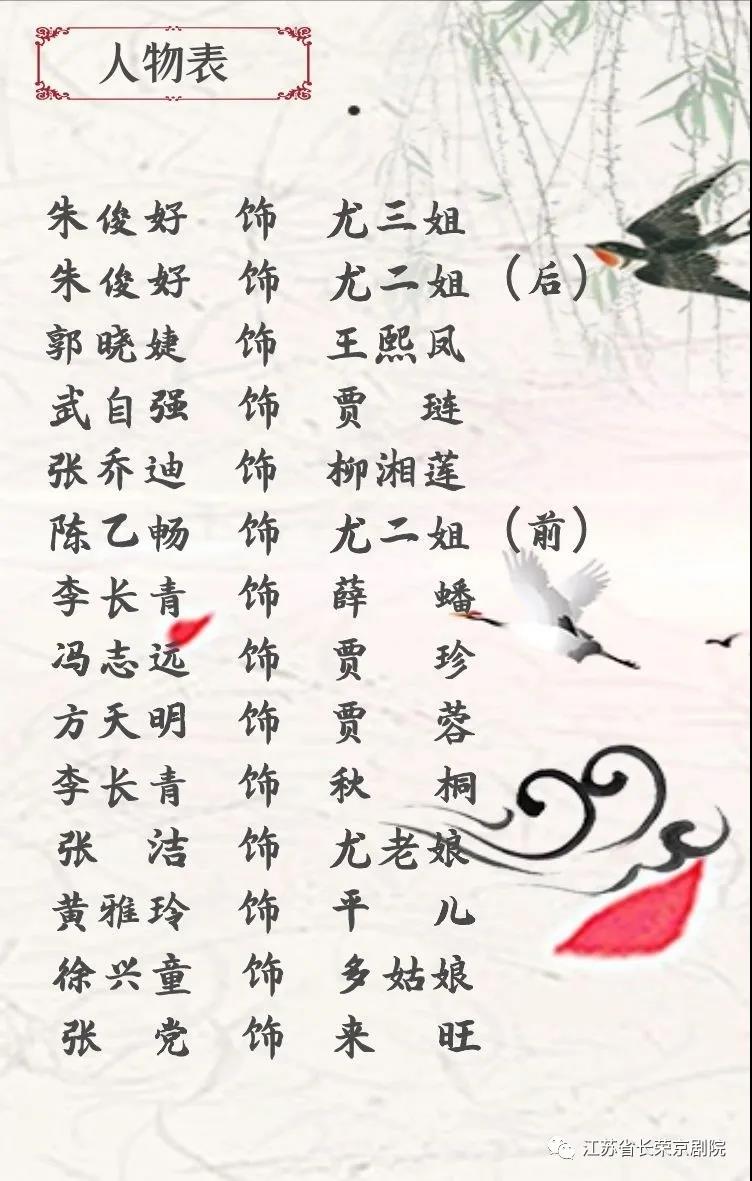 人物表
朱俊好 饰 尤三姐
朱俊好 饰 尤二姐（后）
郭晓婕 饰 王熙凤
武自强 饰 贾 琏
张乔迪 饰 柳湘莲
陈乙畅 饰 尤二姐（前）
李长青 饰 薛 蟠
冯志远 饰 贾 珍
方天明 饰 贾 蓉
李长青 饰 秋 桐
张 洁 饰 尤老娘
黄雅玲 饰 平 儿
徐兴童 饰 多姑娘
张 党 饰 来 旺
江苏省长荣京剧院